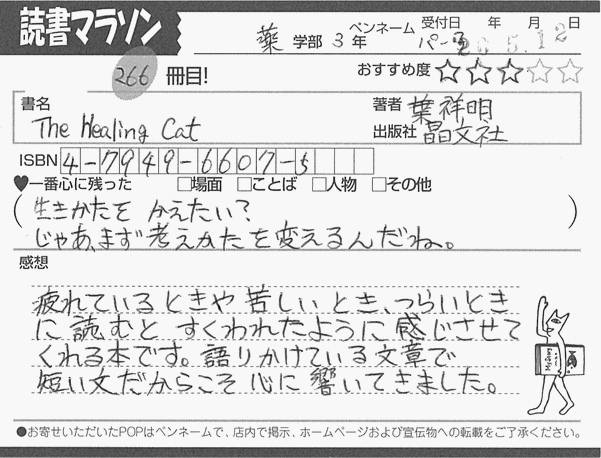 読書マラソン
ペンネーム 受付日 年 月 日
薬 学部 3 年 パーる 26.5.12
266 冊目! おすすめ度 ☆☆☆☆☆
書名 著者 葉祥明
The Healing Cat 出版社 晶文社
ISBN 4-7949-6607-5
♥一番心に残った □場面 □ことば □人物 □その他
(生きかたを かえたい?
じゃあ、まず 考えかたを変えるんだね。)
感想
疲れている ときや 苦しい とき、つらいとき
に 読むと すくわれたように 感じさせて
くれる本です。語りかけている文章で
短い文だからこそ 心に 響いてきました。
●お寄せいただいたPOPはペンネームで、店内で掲示、ホームページおよび宣伝物への転載をご了承ください。